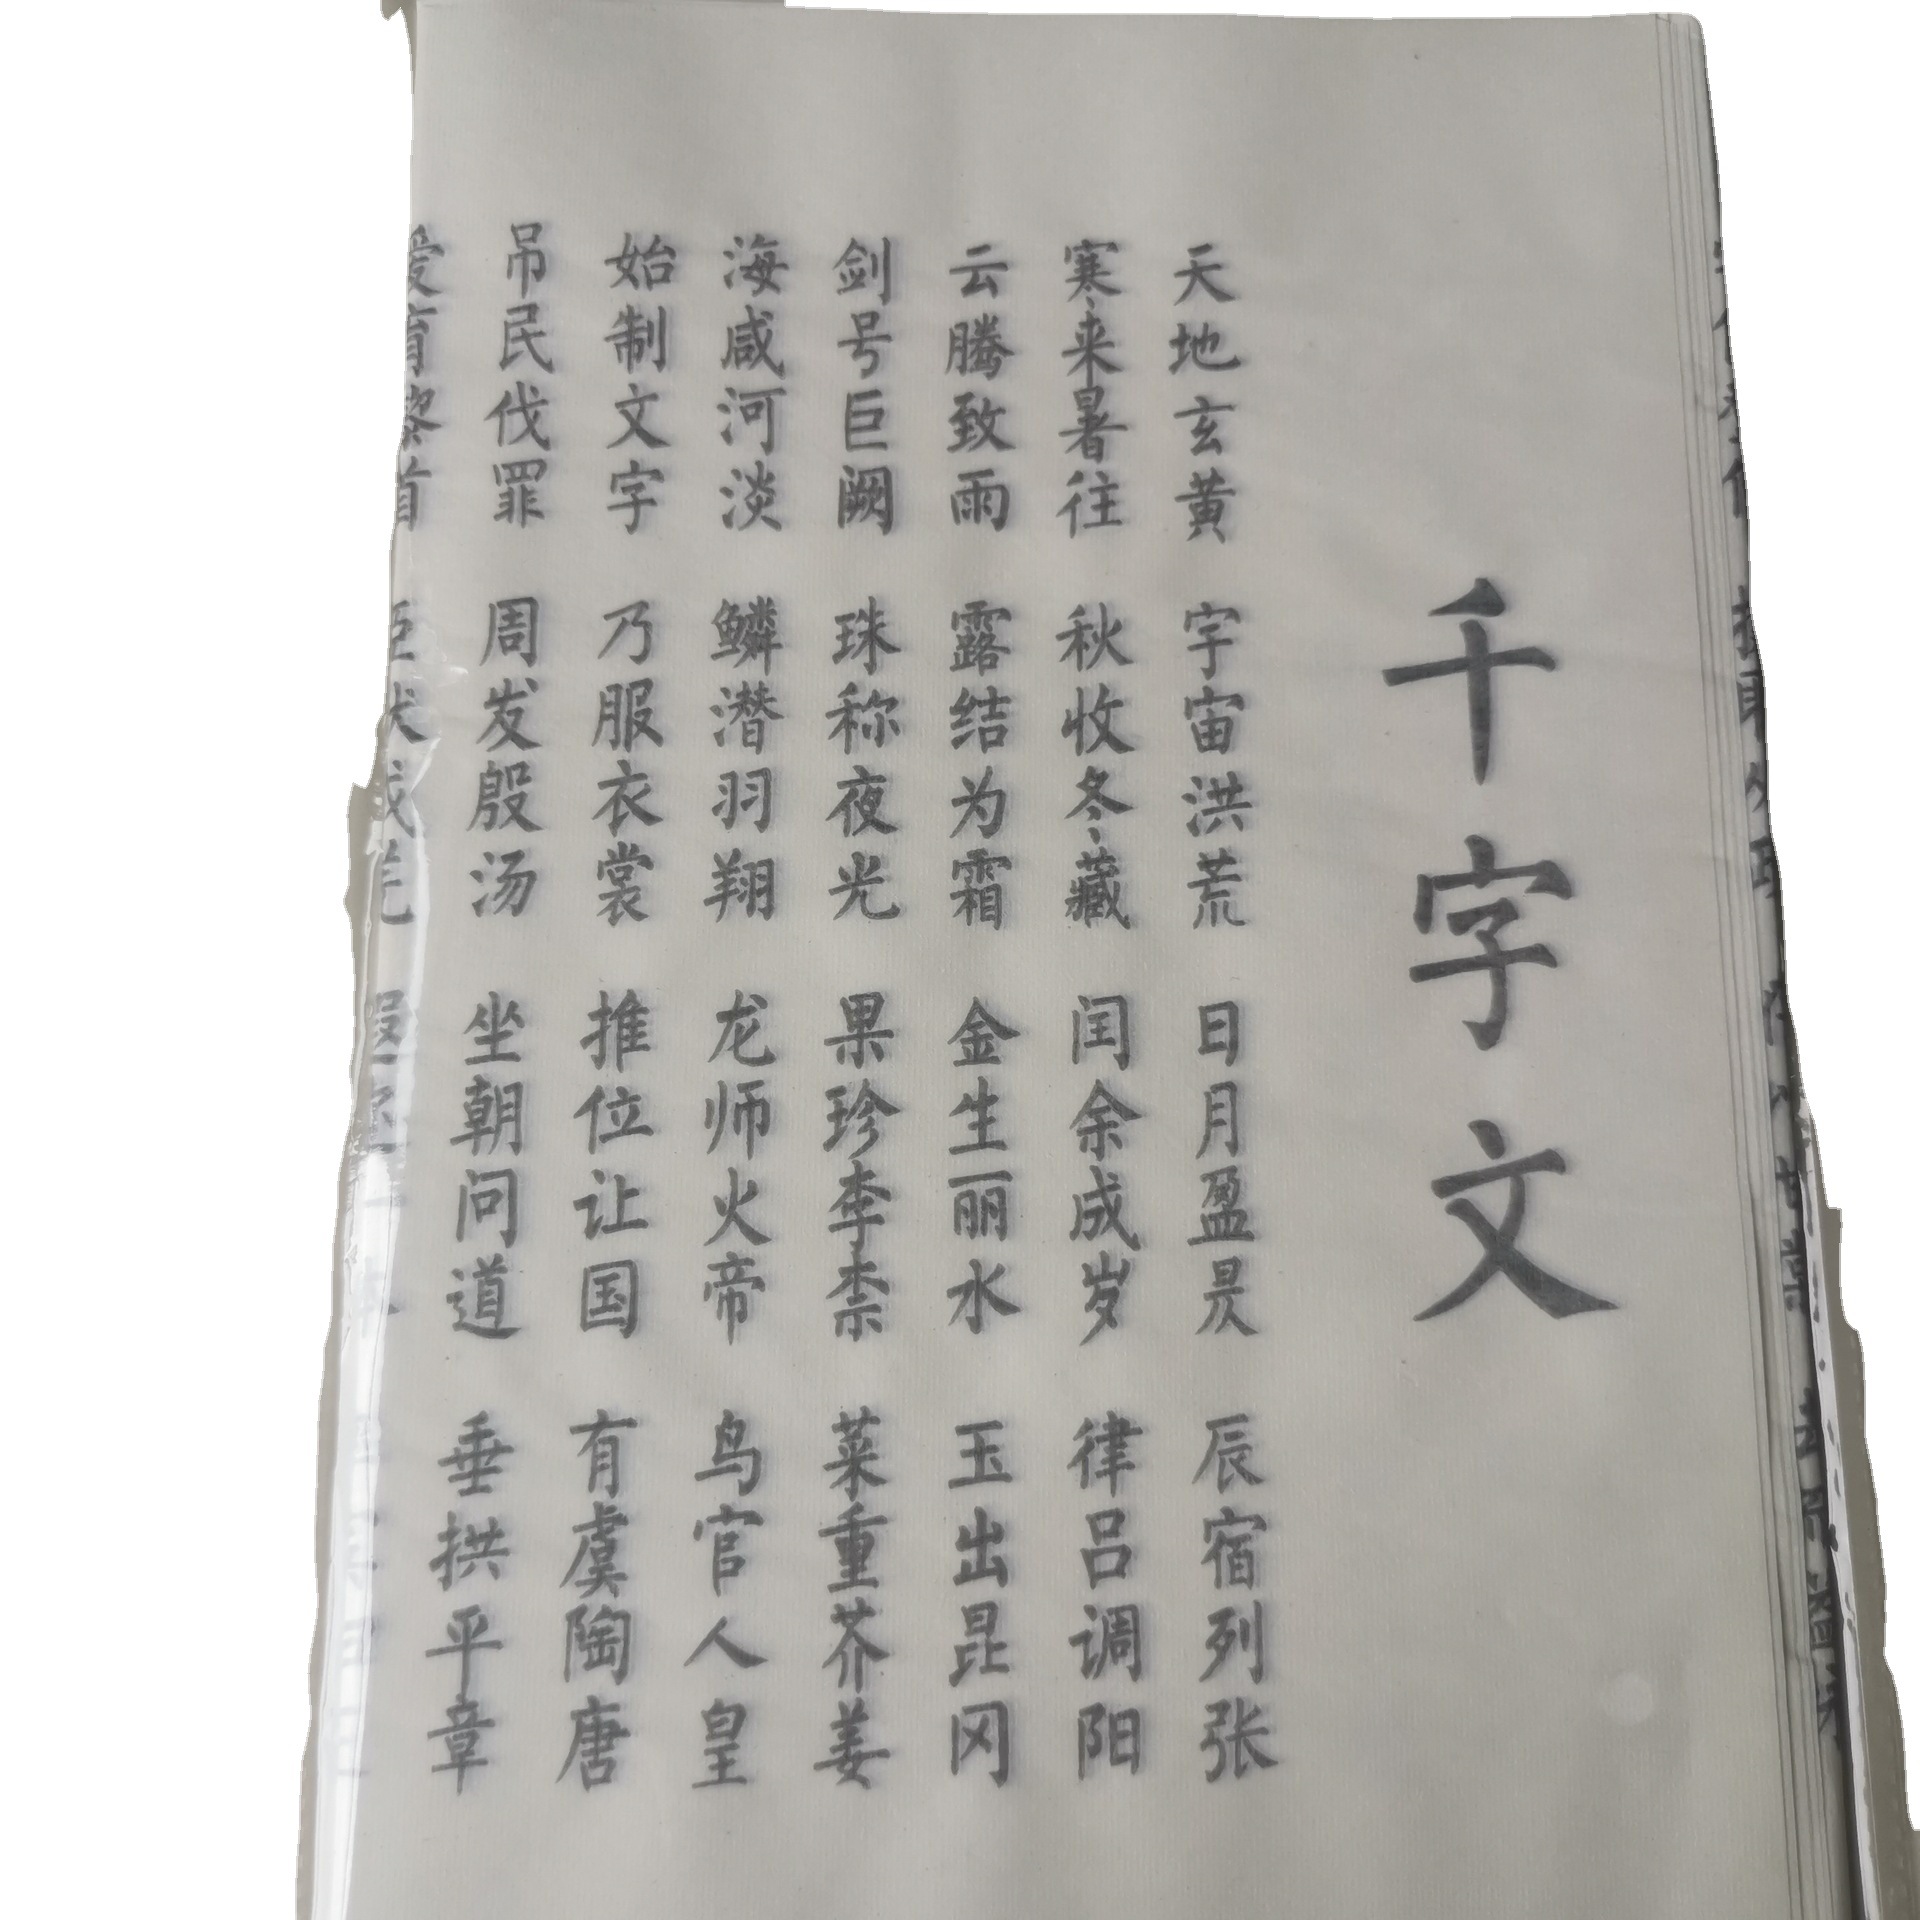 千字文
天地玄黄 宇宙洪荒 日月盈昃 辰宿列张
寒来暑往 秋收冬藏 闰余成岁 律吕调阳
云腾致雨 露结为霜 金生丽水 玉出昆冈
剑号巨阙 珠称夜光 果珍李柰 菜重芥姜
海咸河淡 鳞潜羽翔 龙师火帝 鸟官人皇
始制文字 乃服衣裳 推位让国 有虞陶唐
吊民伐罪 周发殷汤 坐朝问道 垂拱平章
爱育黎首